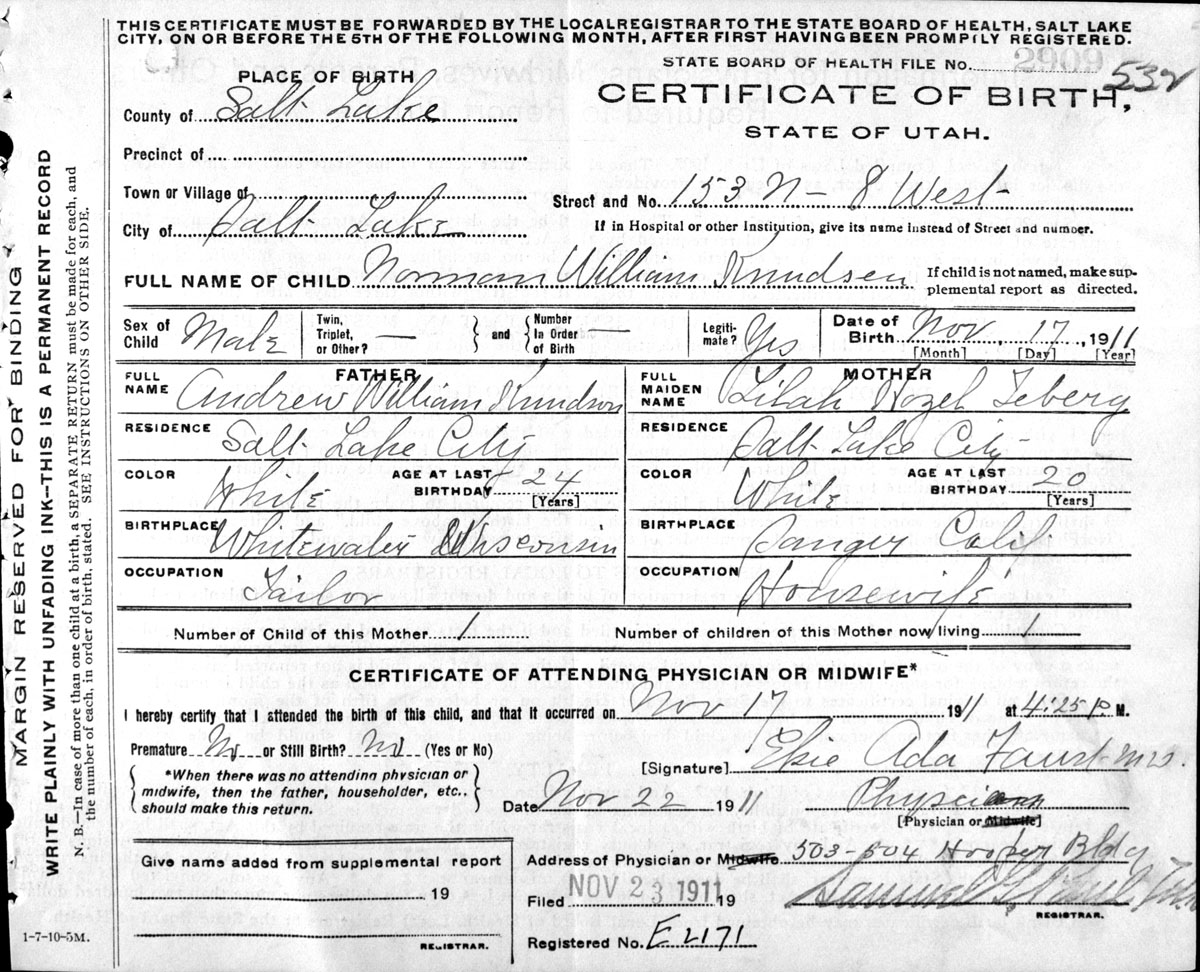 THIS CERTIFICATE MUST BE FORWARDED BY THE LOCAL REGISTRAR TO THE STATE BOARD OF HEALTH, SALT LAKE
CITY, ON OR BEFORE THE 5TH OF THE FOLLOWING MONTH, AFTER FIRST HAVING BEEN PROMPTLY REGISTERED.
STATE BOARD OF HEALTH FILE No. 2909 532
PLACE OF BIRTH
CERTIFICATE OF BIRTH,
STATE OF UTAH.
County of Salt Lake
Precinct of
Town or Village of
Street and No. 153 N - 8 West
City of Salt Lake
If in Hospital or other Institution, give its name instead of Street and number.
FULL NAME OF CHILD Norman William Knudsen
If child is not named, make sup-
plemental report as directed.
Sex of Child Male
Twin, Triplet, or Other? —
and
Number In Order of Birth —
Legiti-mate? Yes
Date of Birth Nov. 17, 1911
[Month] [Day] [Year]
FATHER
FULL NAME Andrew William Knudson
RESIDENCE Salt Lake City
COLOR White
AGE AT LAST BIRTHDAY 24
[Years]
BIRTHPLACE Whitewater Wisconsin
OCCUPATION Tailor
MOTHER
FULL MAIDEN NAME Lilah Hazel Teberg
RESIDENCE Salt Lake City
COLOR White
AGE AT LAST BIRTHDAY 20
[Years]
BIRTHPLACE Sanger Calif
OCCUPATION Housewife
Number of Child of this Mother 1
Number of children of this Mother now living 1
CERTIFICATE OF ATTENDING PHYSICIAN OR MIDWIFE*
I hereby certify that I attended the birth of this child, and that it occurred on Nov 17 1911 at 4:25 P M.
Premature No or Still Birth? No (Yes or No)
*When there was no attending physician or
midwife, then the father, householder, etc.,
should make this return.
[Signature] Elsie Ada Faust M.D.
Date Nov 22 1911
Physician
[Physician or Midwife]
Give name added from supplemental report
19
REGISTRAR.
Address of Physician or Midwife 503-504 Hooper Bldg
Filed NOV 23 1911 19
Samuel G. Paul
REGISTRAR.
Registered No. E 2171
1-7-10-5M.
MARGIN RESERVED FOR BINDING
WRITE PLAINLY WITH UNFADING INK—THIS IS A PERMANENT RECORD
N. B.—In case of more than one child at a birth, a SEPARATE RETURN must be made for each, and
the number of each, in order of birth, stated. SEE INSTRUCTIONS ON OTHER SIDE.